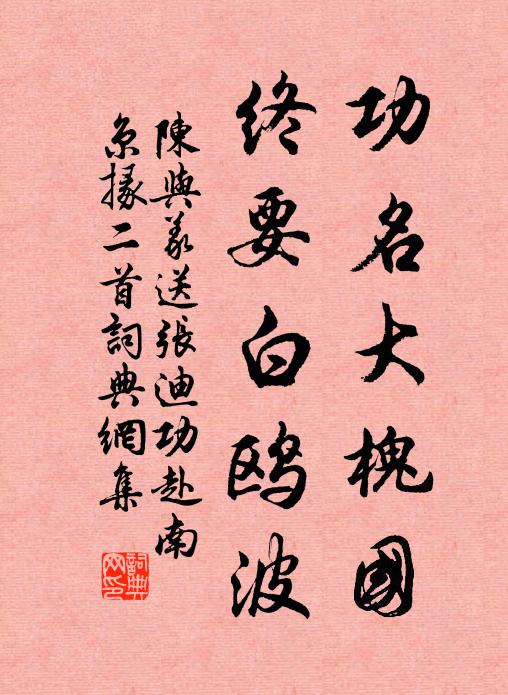 功名大槐國
終要白鷗波
陳與義送張迪功赴南
京掾二首詞典網集
詞典
网印